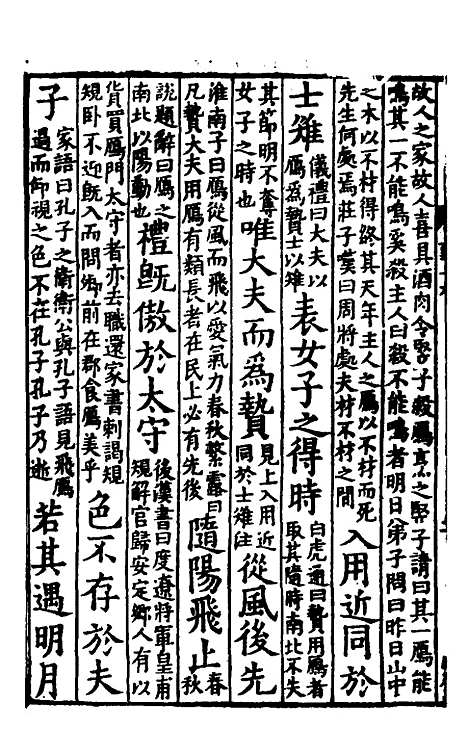 故人之家故人喜具酒肉令竪子殺鴈烹之竪子請曰其一鴈能
鳴其一不能鳴奚殺主人曰殺不能鳴者明日弟子問曰昨日山中
之木以不材得終其天年主人之鴈以不材而死
先生何處焉莊子嘆曰周將處夫材不材之間
入用近同於
士雉
儀禮曰大夫以
鴈為贄士以雉
表女子之得時
白虎通曰贄用鴈者
取其隨時南北不失
其節明不奪
女子之時也
唯大夫而為贄
見上入用近
同於士雉注
從風後先
淮南子曰鴈從風而飛以愛氣力春秋繁露曰
凡贄大夫用鴈有類長者在民上必有先後
隨陽飛止
春
秋
說題解曰鴈之
南北以陽動也
禮旣傲於太守
後漢書曰度遼將軍皇甫
規解官歸安定鄉人有以
貨買鴈門太守者亦去職還家書刺謁規
規卧不迎旣入而問卿前在郡食鴈美乎
色不存於夫
子
家語曰孔子之衛衛公與孔子語見飛鴈
過而仰視之色不在孔子孔子乃逝
若其遇明月